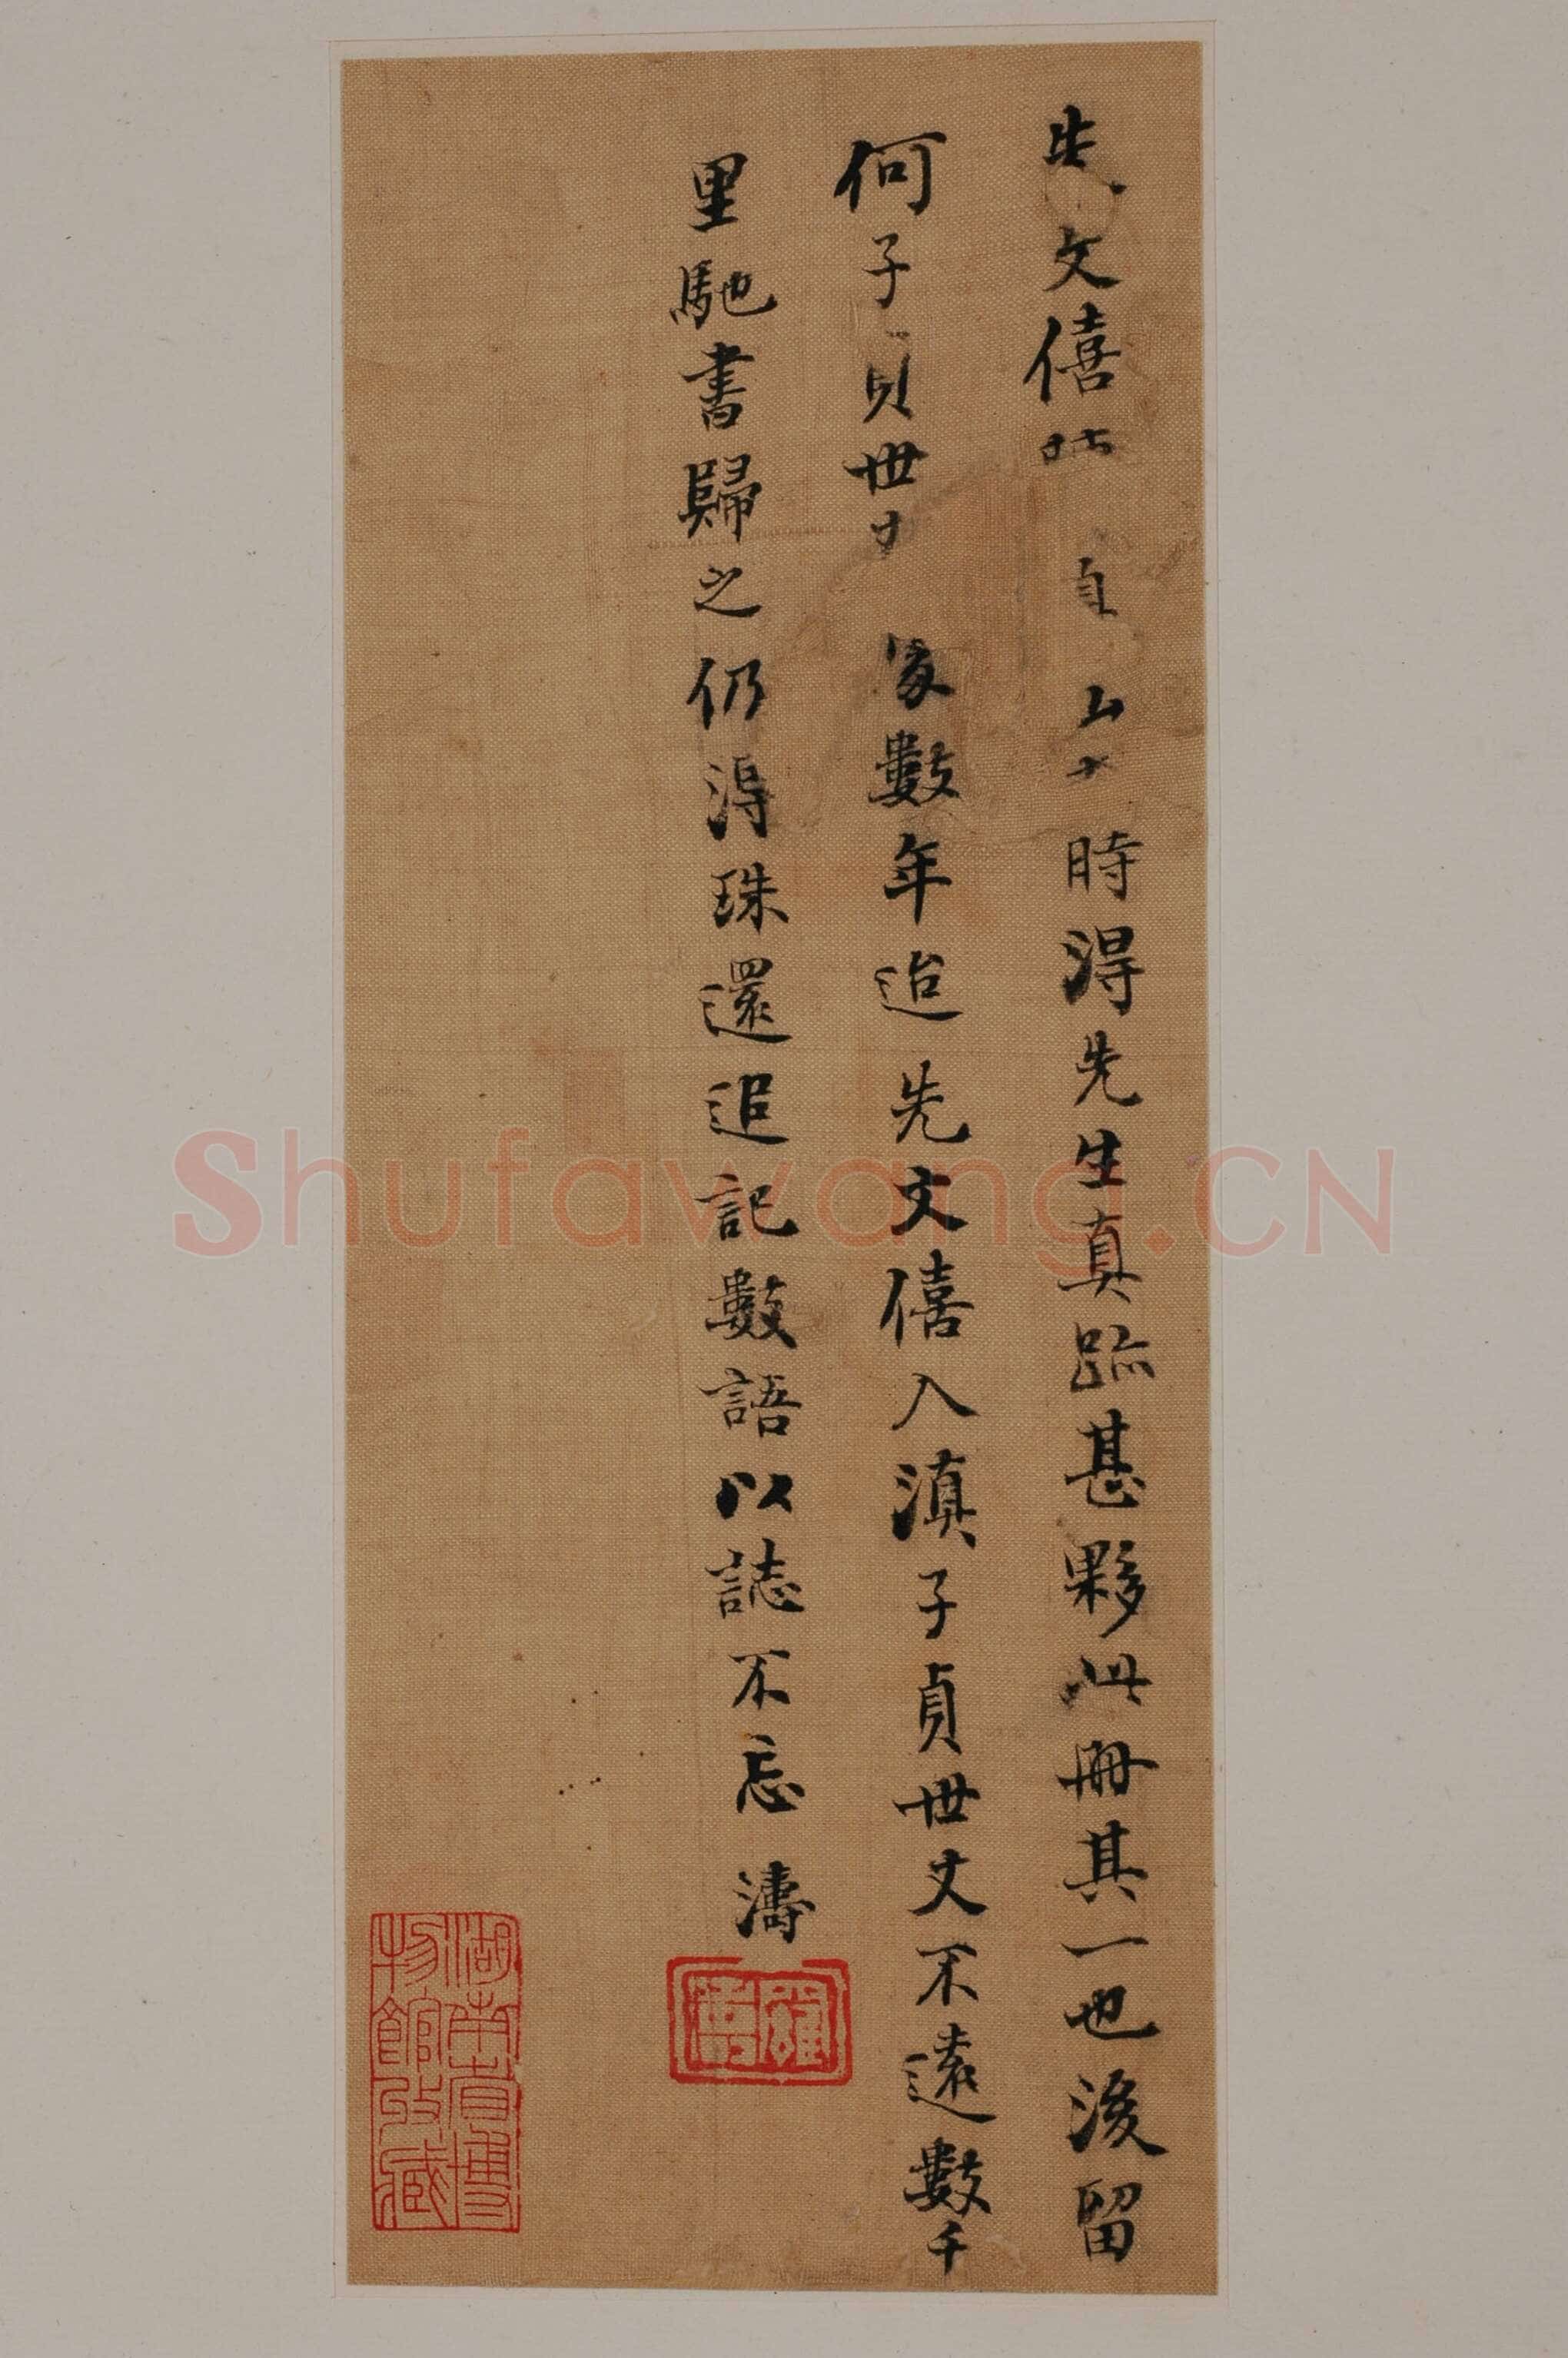 先文僖時得先生真跡甚夥此冊其一也後留
何子貞世家數年迨先文僖入滇子貞世丈不遠數千
里馳書歸之仍得珠還追記數語以誌不忘 濤
湖南省博
物館收藏
Shufawang.CN